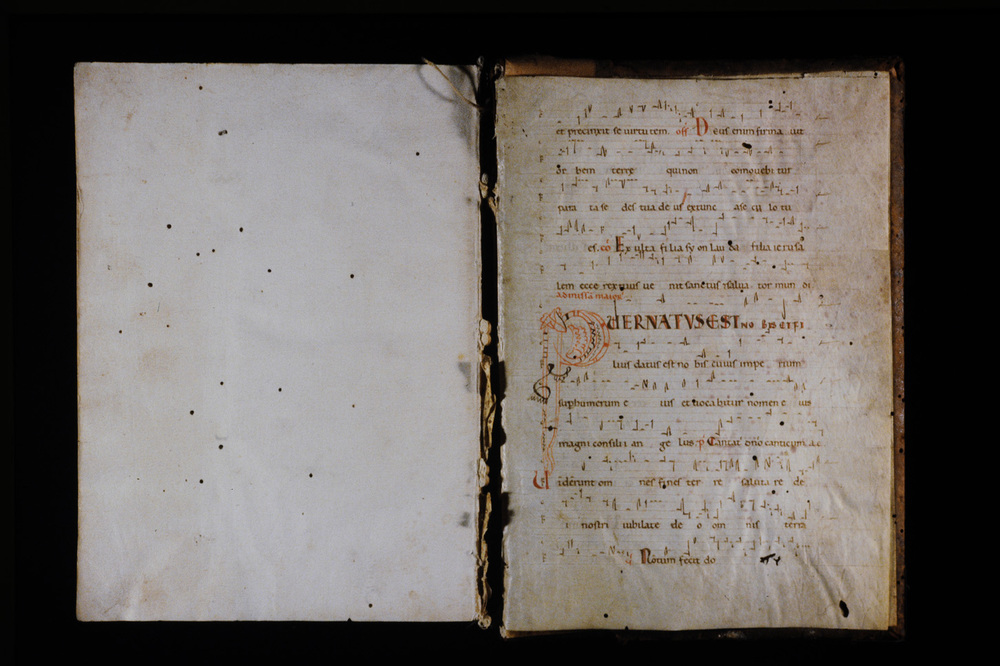 et precinxit se uirtutem. off Deus enim firma uit
or bem terre qui non comouebi tur
para ta se des tua de us ex tunc ase cu lo tu
es. co Ex ulta fi lia sy on lau da filia ierusa
lem ecce rex tuus ue nit sanctus & salua tor mun di
ad missa maior
PUER NATUS EST NO BIS ET FI
lius datus est no bis cuius impe rium
sup humerum e ius et uoca bitur nomen e ius
magni consili i an ge lus. p Cantat dno canticum
Uiderunt om nes fines ter re saluta re de
i nostri iubilate de o om nis terra
Notum fecit do